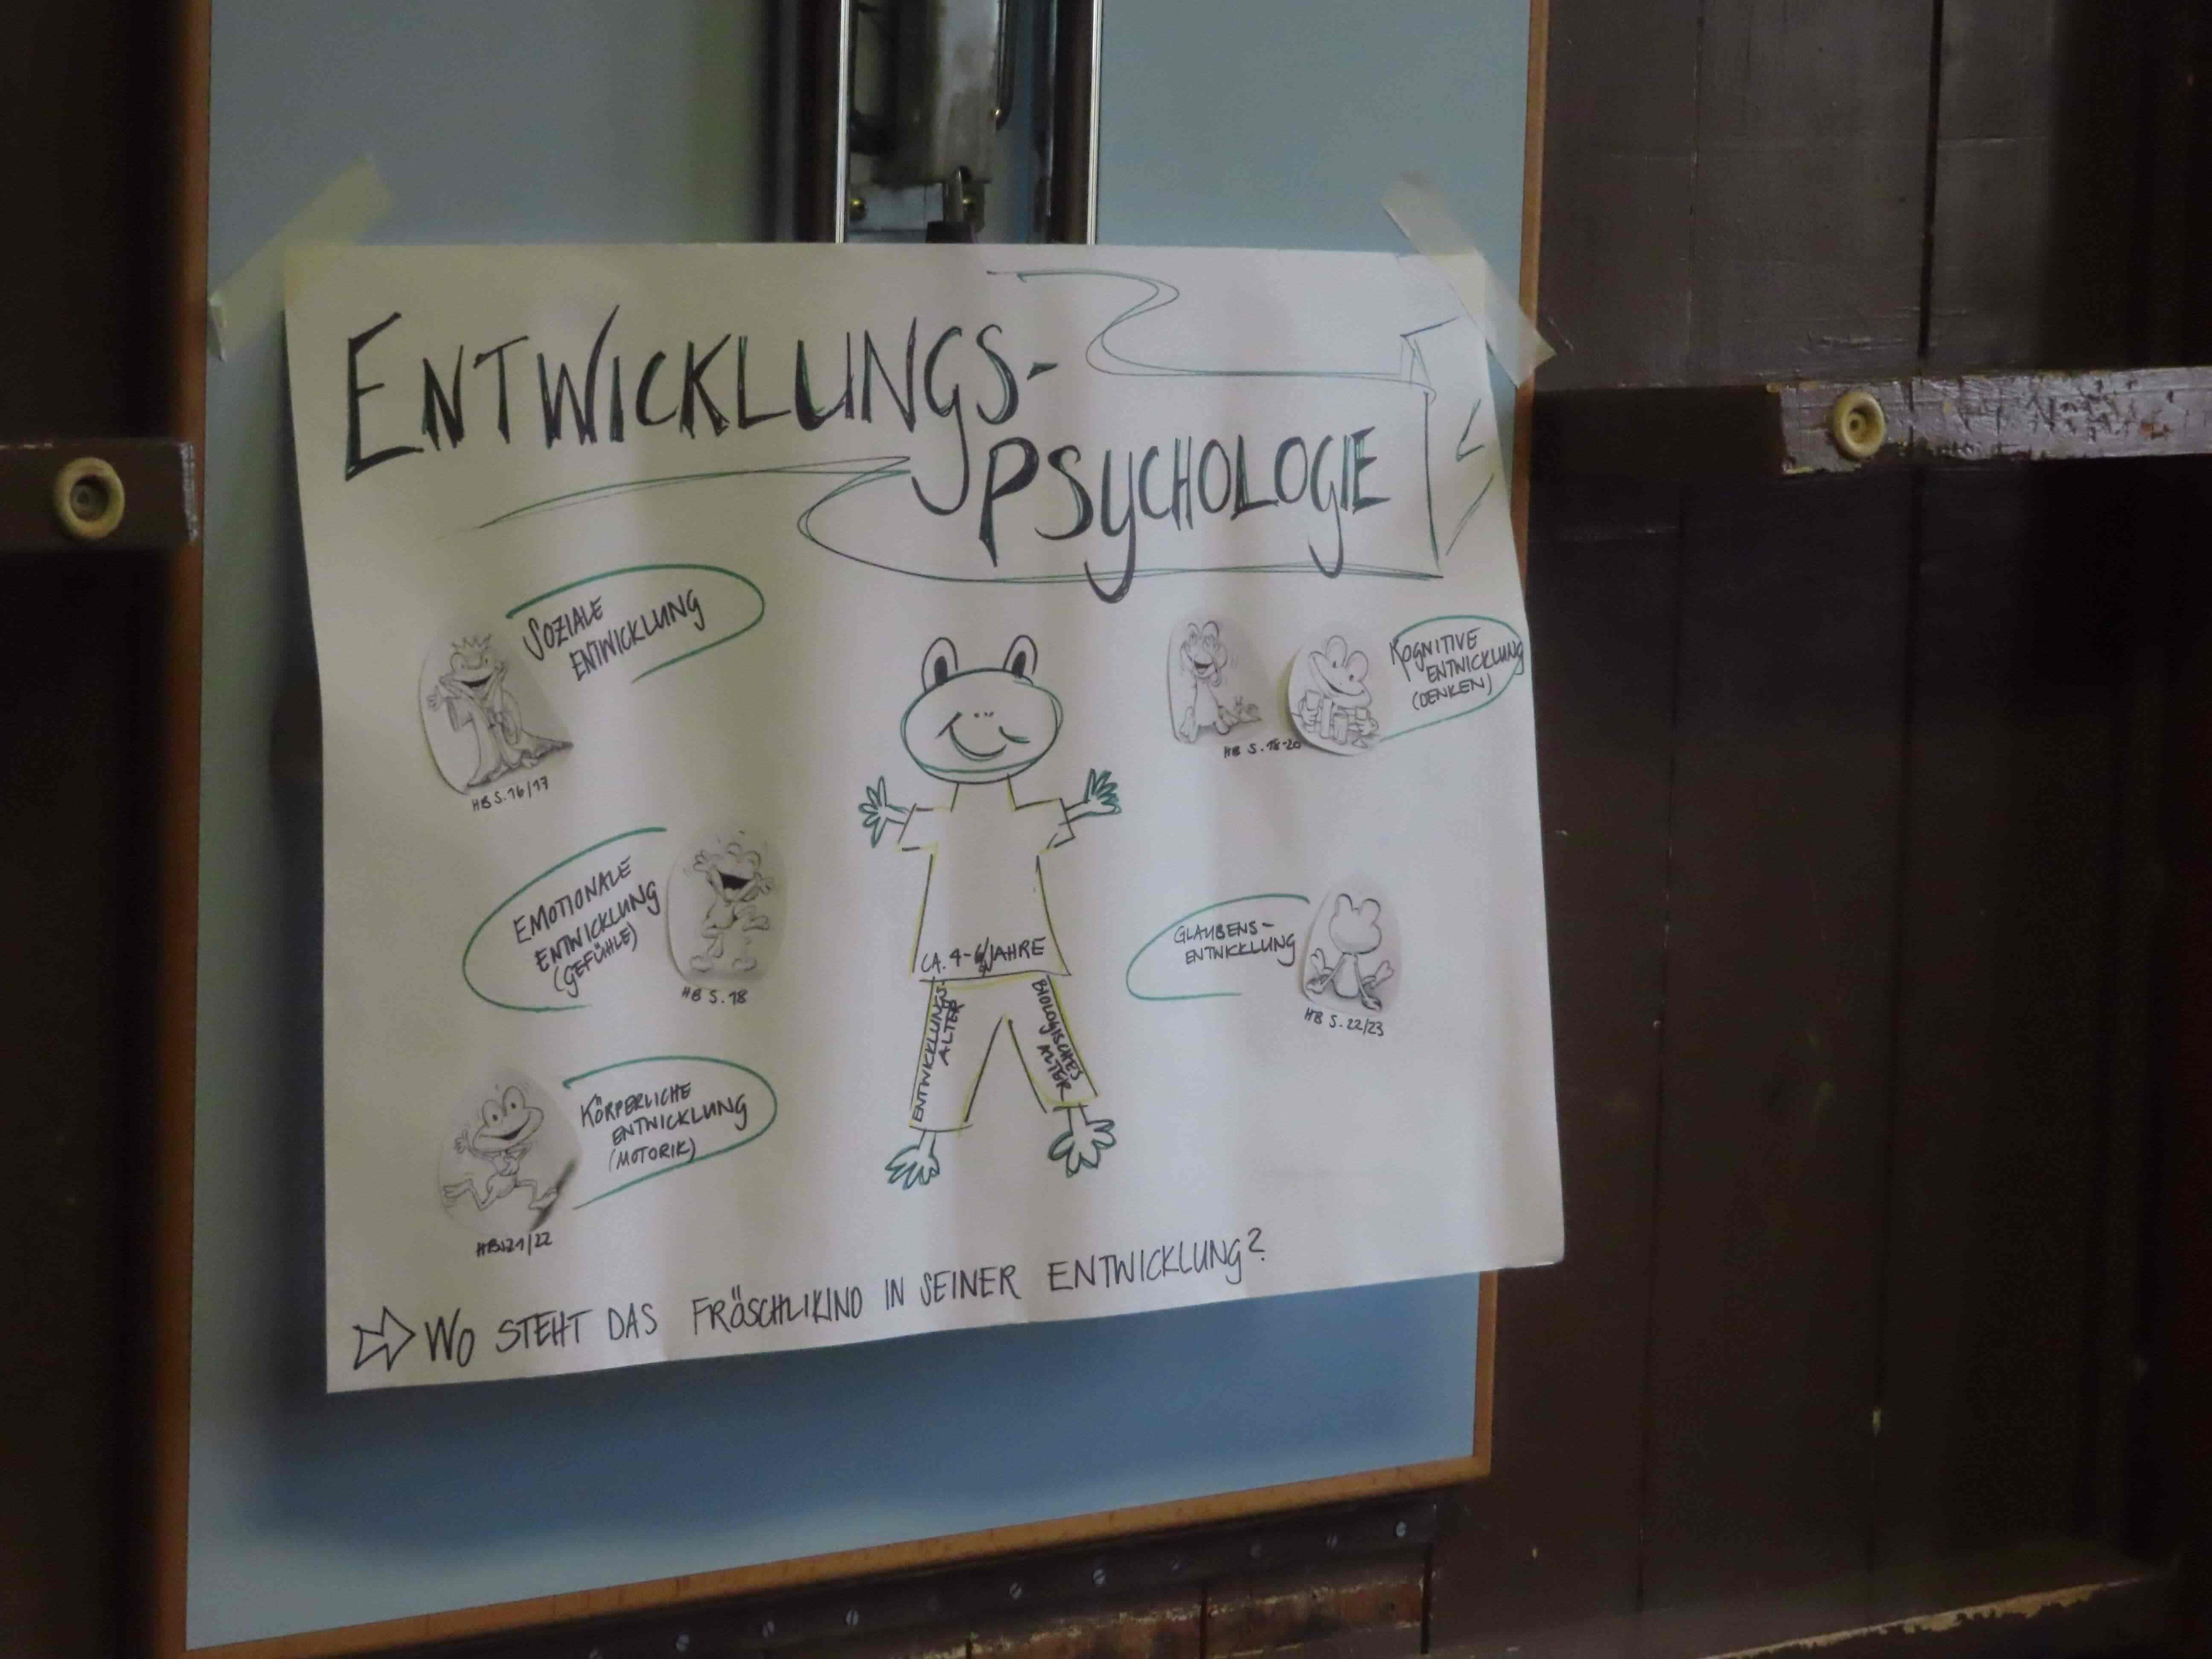 ENTWICKLUNGS-
PSYCHOLOGIE
SOZIALE
ENTWICKLUNG
HB S. 16/17
KOGNITIVE
ENTWICKLUNG
(DENKEN)
HB S. 18-20
EMOTIONALE
ENTWICKLUNG
(GEFÜHLE)
HB S. 18
GLAUBENS-
ENTWICKLUNG
HB S. 22/23
KÖRPERLICHE
ENTWICKLUNG
(MOTORIK)
HB S21/22
CA. 4-6 JAHRE
ENTWICKLUNGS-
ALTER
BIOLOGISCHES
ALTER
WO STEHT DAS FRÖSCHLIKIND IN SEINER ENTWICKLUNG?